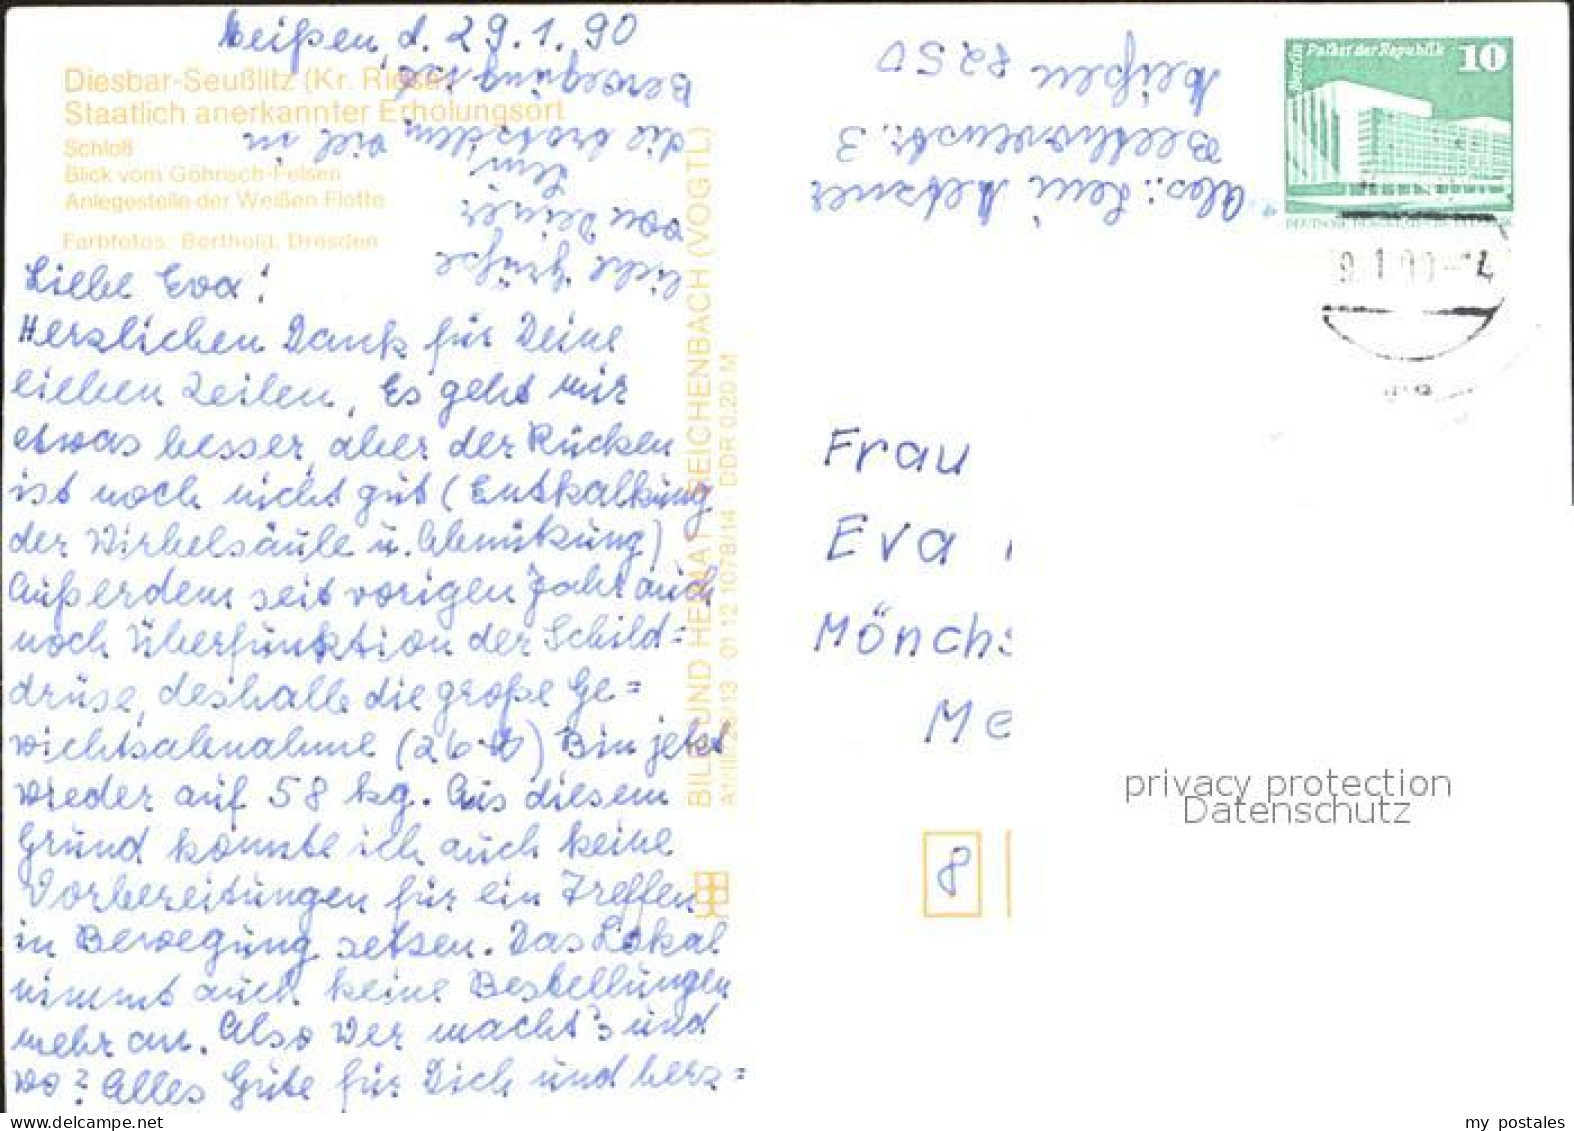 Meißen, d. 29.1.90
Diesbar-Seußlitz (Kr. Riesa)
Staatlich anerkannter Erholungsort
Schloß
Blick vom Göhrisch-Felsen
Anlegestelle der Weißen Flotte
Farbfotos: Berthold, Dresden
Liebe Eva!
Herzlichen Dank für Deine
lieben Zeilen, Es geht mir
etwas besser, aber der Rücken
ist noch nicht gut (Entkalkung
der Wirbelsäule u. Abnützung)
Außerdem seit vorigen Jahr auch
noch Überfunktion der Schild=
drüse, deshalb die große Ge=
wichtsabnahme (26 ) Bin jetzt
wieder auf 58 kg. Aus diesem
Grund konnte ich auch keine
Vorbereitungen für ein Treffen
in Bewegung setzen. Das Lokal
nimmt auch keine Bestellungen
mehr an. Also Wer macht's und
wo? Alles Gute für Dich und herz=
liche Grüße
von Deiner
Leni
die trotzdem viel in
Bewegung ist
BILD UND HEIMAT REICHENBACH (VOGTL)
01 12 1078/14 DDR 0,20 M
Abs.: Leni
Beethovenstr. 3
Meißen 8250
Berlin Palast der Republik 10
Frau
Eva
Mönchs
Me
8
privacy protection
Datenschutz
my postales